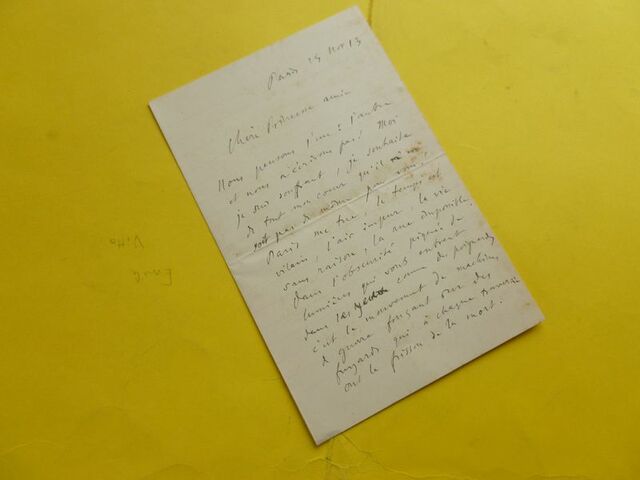 Paris 25 nov 13
Chère Princesse amie
Nous pensons l'une à l'autre
et nous n'écrivons pas! Moi
je suis souffrant, je souhaite
de tout mon cœur qu'il n'en
soit pas de même pour vous,
Paris me tue, le temps est
vilain, l'air impur, la vie
sans raison, la rue impossible.
Dans l'obscurité piquée de
lumières qui vous entrent
dans les yeux comme des poignards
c'est le mouvement de machines
de guerre fonçant sur des
fuyards qui à chaque traversée
ont le frisson de la mort.